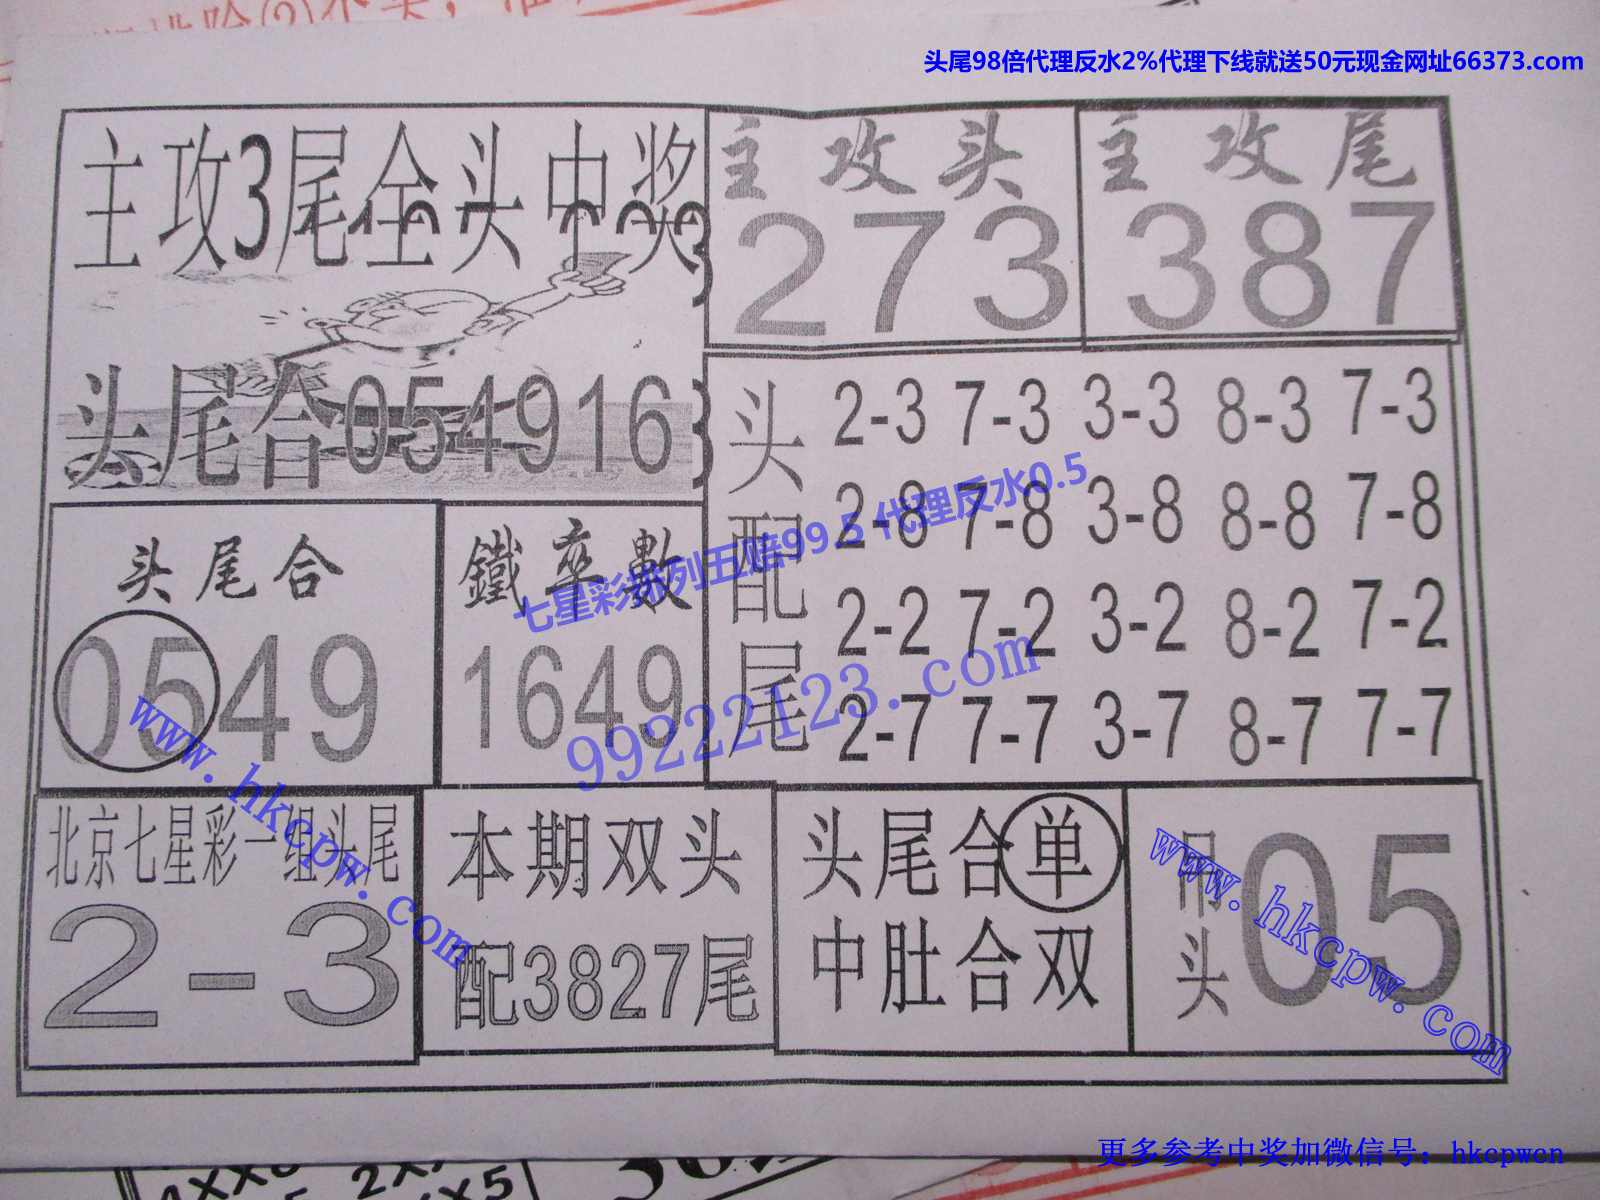 头尾98倍代理反水2%代理下线就送50元现金网址66373.com
主攻3尾全头中奖
主攻头
273
主攻尾
387
头尾合054916
头配尾
2-3 7-3 3-3 8-3 7-3
2-8 7-8 3-8 8-8 7-8
2-2 7-2 3-2 8-2 7-2
2-7 7-7 3-7 8-7 7-7
头尾合
0549
鐵率數
1649
七星彩排列五赔99.5 代理反水0.5
99222123.com
www.hkcpw.com
北京七星彩一组头尾
2-3
本期双头
配3827尾
头尾合单
中肚合双
吊头
05
www.hkcpw.com
更多参考中奖加微信号：hkcpwcn